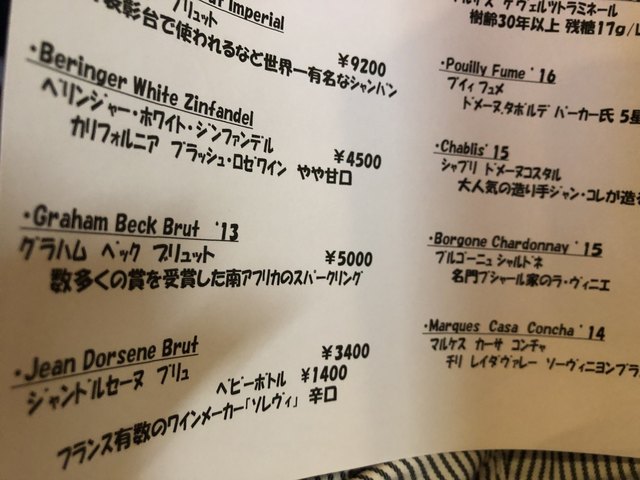 Imperial
ブリュット
表彰台で使われるなど世界一有名なシャンパン
¥9200
・Beringer White Zinfandel
ベリンジャー・ホワイト・ジンファンデル
¥4500
カリフォルニア ブラッシュ・ロゼワイン やや甘口
・Graham Beck Brut '13
グラハム ベック ブリュット
¥5000
数多くの賞を受賞した南アフリカのスパークリング
・Jean Dorsene Brut
¥3400
ジャンドルセーヌ ブリュ
ベビーボトル ¥1400
フランス有数のワインメーカー「ソレヴィ」 辛口
ゲヴェルツトラミネール
樹齢30年以上 残糖17g/L
・Pouilly Fume '16
プイィ フュメ
ドメーヌ.タボルデ パーカー氏 5星
・Chablis '15
シャブリ ドメーヌコスタル
大人気の造り手ジャン・コレが造る
・Borgone Chardonnay '15
ブルゴーニュ シャルドネ
名門ブシャール家のラ・ヴィニエ
・Marques Casa Concha '14
マルケス カーサ コンチャ
チリ レイダヴァレー ソーヴィニヨンブラ